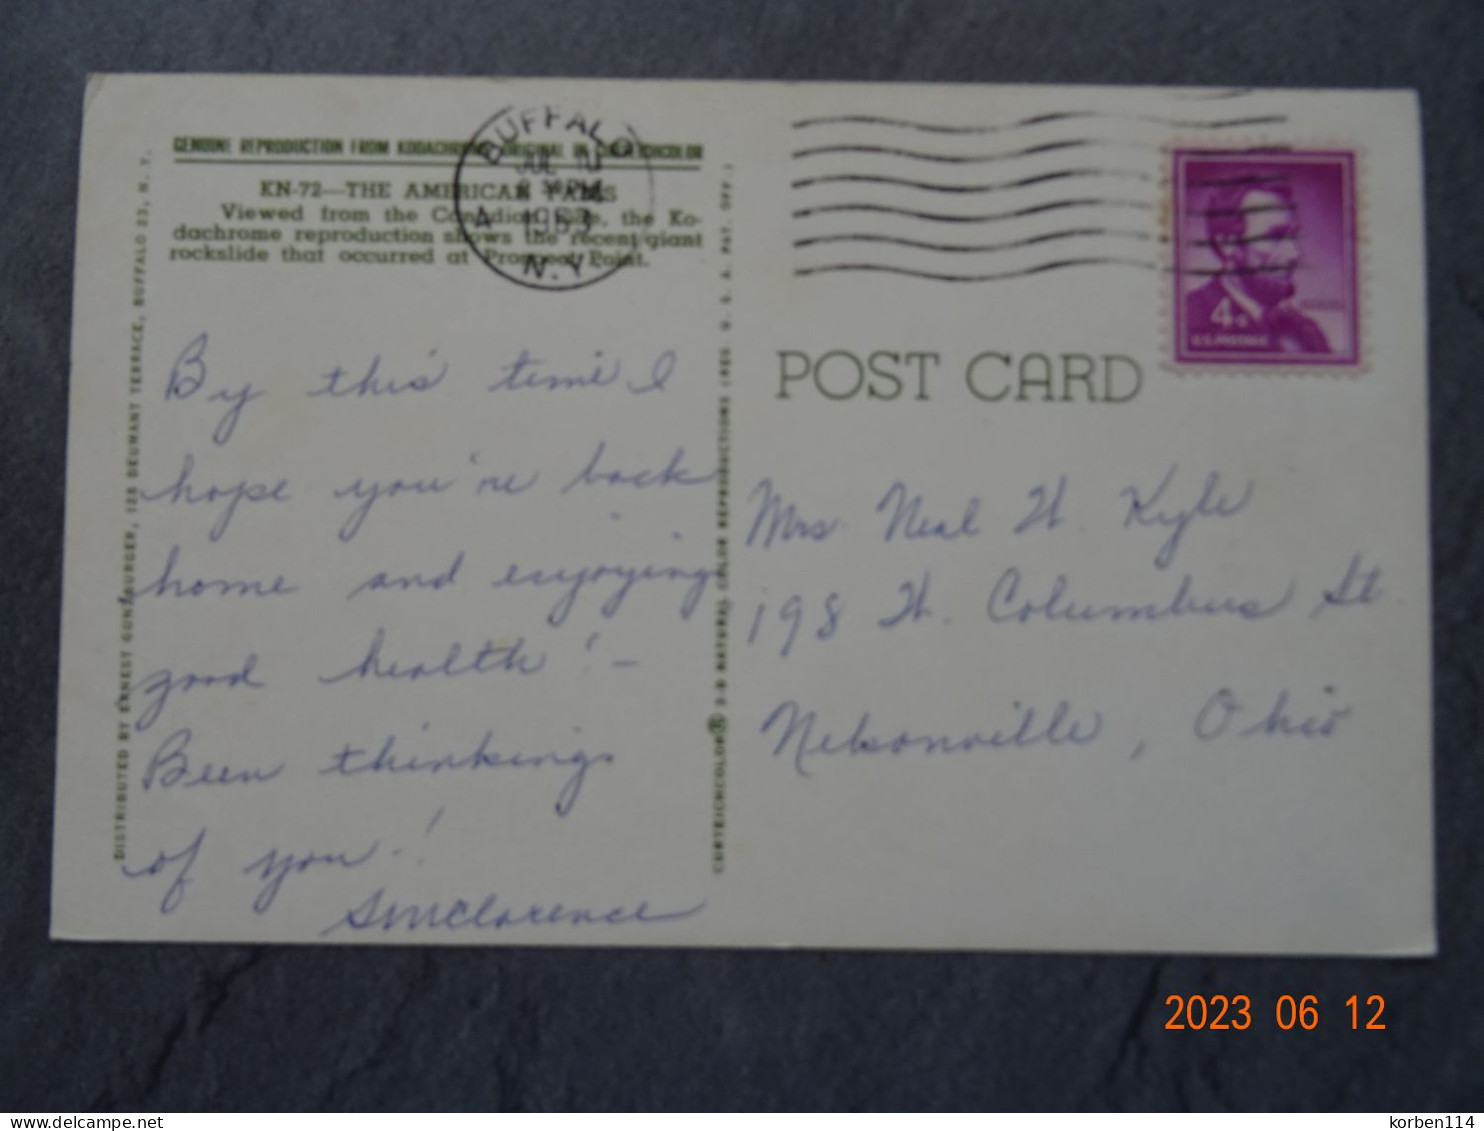 GENUINE REPRODUCTION FROM KODACHROME ORIGINAL IN CURTEICHCOLOR
KN-72—THE AMERICAN FALLS
Viewed from the Canadian Side, the Ko-
dachrome reproduction shows the recent giant
rockslide that occurred at Prospect Point.
BUFFALO
JUL
PM
1963
N.Y.
4¢
U.S. POSTAGE
POST CARD
By this time I
hope you're back
home and enjoying
good health! –
Been thinking
of you!
Clarence
Mrs. Neal W. Kyle
198 W. Columbus St.
Nelsonville, Ohio
DISTRIBUTED BY ERNEST GUNZBURGER, 128 DEUMANT TERRACE, BUFFALO 23, N. Y.
CURTEICHCOLOR® 3-D NATURAL COLOR REPRODUCTIONS (REG. U. S. A. PAT. OFF.)
2023 06 12
korben114